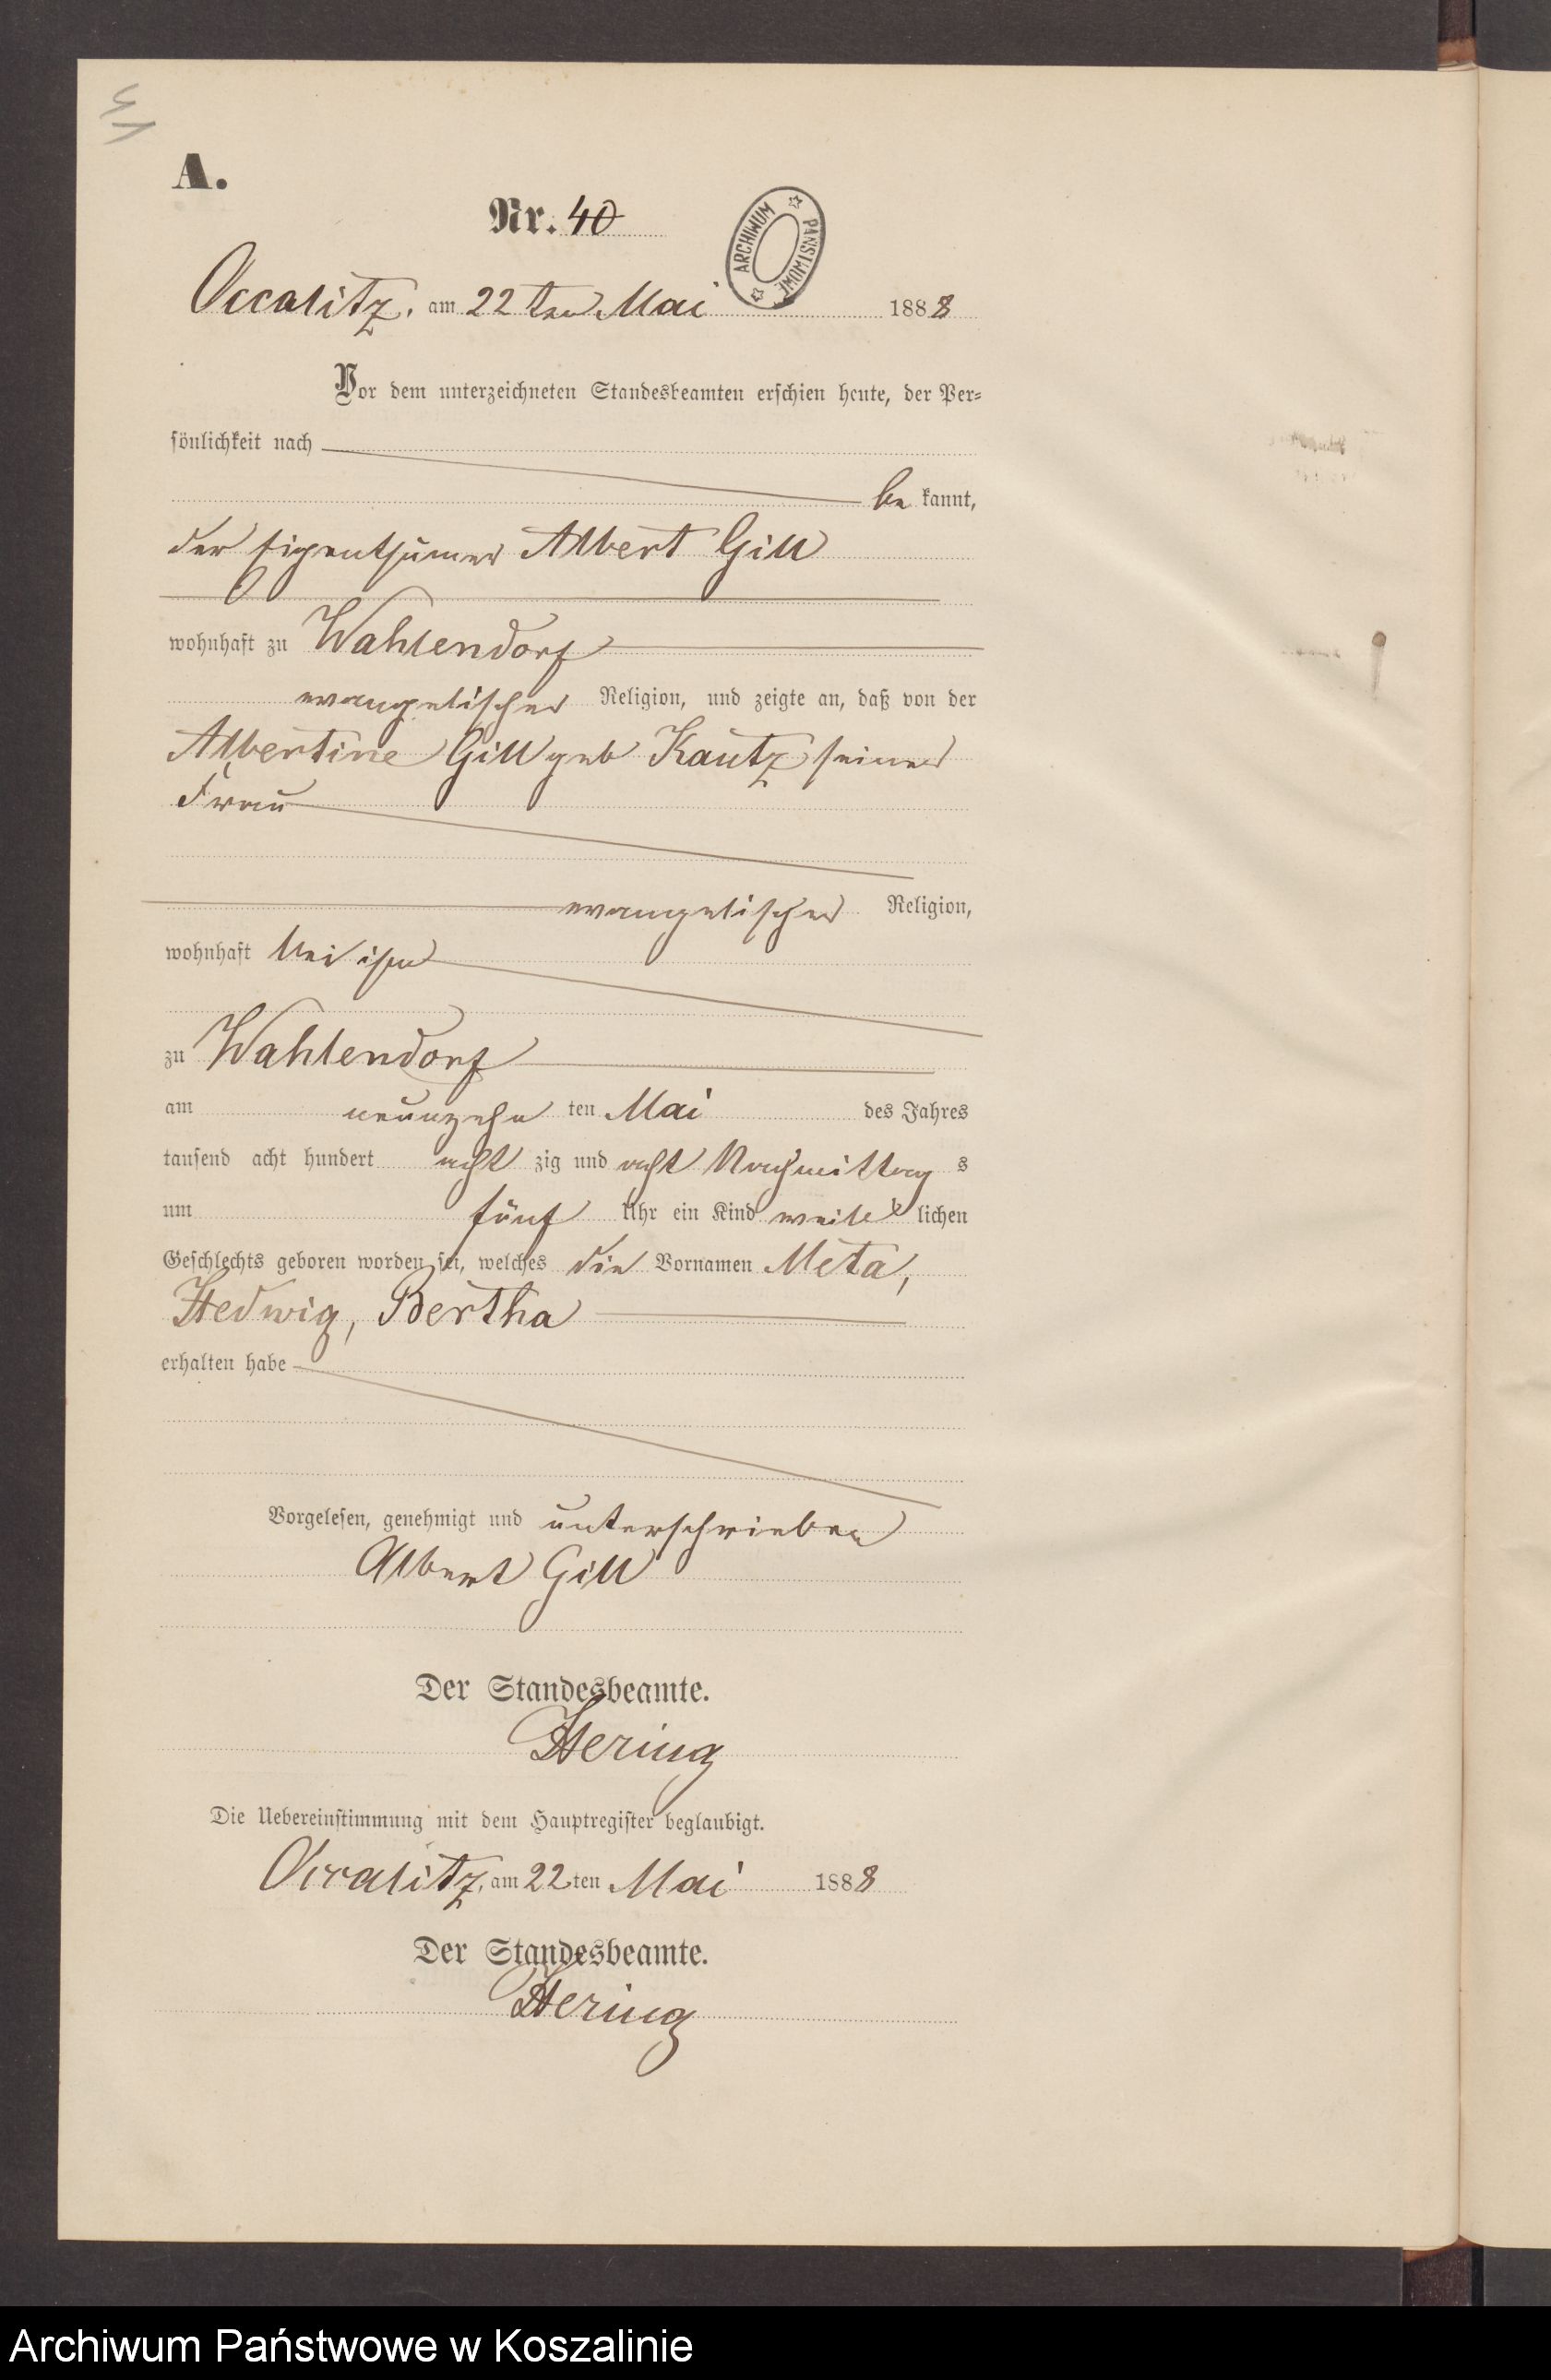 41
A.
Nr. 40
ARCHIWUM PAŃSTWOWE
Occalitz, am 22 ten Mai 1888
Vor dem unterzeichneten Standesbeamten erschien heute, der Per-
sönlichkeit nach
be kannt,
der Eigenthümer Albert Gill
wohnhaft zu Wahlendorf
evangelischer Religion, und zeigte an, daß von der
Albertine Gill geb Kautz seiner
Frau
evangelischer Religion,
wohnhaft bei ihm
zu Wahlendorf
am neunzehn ten Mai des Jahres
tausend acht hundert acht zig und acht Nachmittag s
um fünf Uhr ein Kind weib lichen
Geschlechts geboren worden sei, welches die Vornamen Meta,
Hedwig, Bertha
erhalten habe
Vorgelesen, genehmigt und unterschrieben
Albert Gill
Der Standesbeamte.
Hering
Die Uebereinstimmung mit dem Hauptregister beglaubigt.
Occalitz, am 22 ten Mai 1888
Der Standesbeamte.
Hering
Archiwum Państwowe w Koszalinie